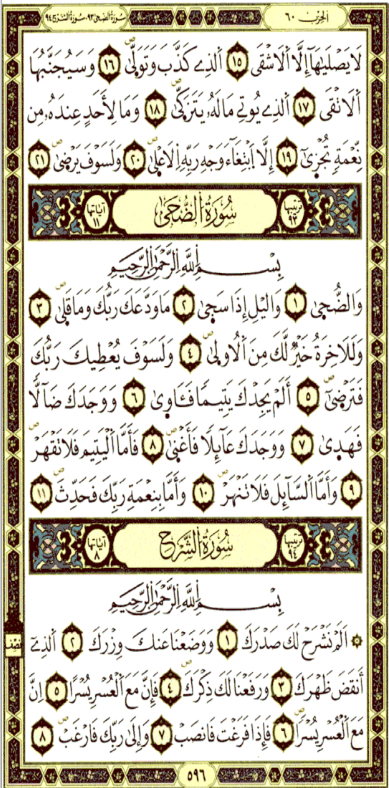 الحزب ٦٠ سورة الضحى ٩٣، سورة الشرح ٩٤
لَا يَصْلَيٰهَا إِلَّا اَلَاشْقَى ١٥ اَلذِے كَذَّبَ وَتَوَلّ۪يٰ ١٦ وَسَيُجَنَّبُهَا
اَلَاتْقَى ١٧ اَلذِے يُوتِے مَالَهُۥ يَتَزَكّ۪يٰ ١٨ وَمَا لِأَحَدٍ عِندَهُۥ مِن
نِّعْمَةٍ تُجْز۪يٰٓ ١٩ إِلَّا اَبْتِغَآءَ وَجْهِ رَبِّهِ اِلَاعْل۪يٰ ٢٠ وَلَسَوْفَ يَرْض۪يٰ ٢١
ترتيبها ٩٣ سُورَةُ الضُّحَىٰ آياتها ١١
بِسْمِ اِللَّهِ اِلرَّحْمَٰنِ اِلرَّحِيمِ
وَالضُّح۪يٰ ١ وَاليْلِ إِذَا سَج۪يٰ ٢ مَا وَدَّعَكَ رَبُّكَ وَمَا قَل۪يٰ ٣
وَلَلَاخِرَةُ خَيْرٌ لَّكَ مِنَ اَلُاول۪يٰ ٤ وَلَسَوْفَ يُعْطِيكَ رَبُّكَ
فَتَرْض۪يٰٓ ٥ أَلَمْ يَجِدْكَ يَتِيماً فَـَٔاو۪يٰ ٦ وَوَجَدَكَ ضَآلّاً
فَهَد۪يٰ ٧ وَوَجَدَكَ عَآئِلاً فَأَغْن۪يٰ ٨ فَأَمَّا اَلْيَتِيمَ فَلَا تَقْهَرْ
٩ وَأَمَّا اَلسَّآئِلَ فَلَا تَنْهَرْ ١٠ وَأَمَّا بِنِعْمَةِ رَبِّكَ فَحَدِّثْ ١١
ترتيبها ٩٤ سُورَةُ الشَّرْحِ آياتها ٨
بِسْمِ اِللَّهِ اِلرَّحْمَٰنِ اِلرَّحِيمِ
۞ أَلَمْ نَشْرَحْ لَكَ صَدْرَكَ ١ وَوَضَعْنَا عَنكَ وِزْرَكَ ٢ اَلذِےٓ
نصف
أَنقَضَ ظَهْرَكَ ٣ وَرَفَعْنَا لَكَ ذِكْرَكَ ٤ فَإِنَّ مَعَ اَلْعُسْرِ يُسْراً ٥ اِنَّ
مَعَ اَلْعُسْرِ يُسْراً ٦ فَإِذَا فَرَغْتَ فَانصَبْ ٧ وَإِلَىٰ رَبِّكَ فَارْغَبْ ٨
٥٩٦